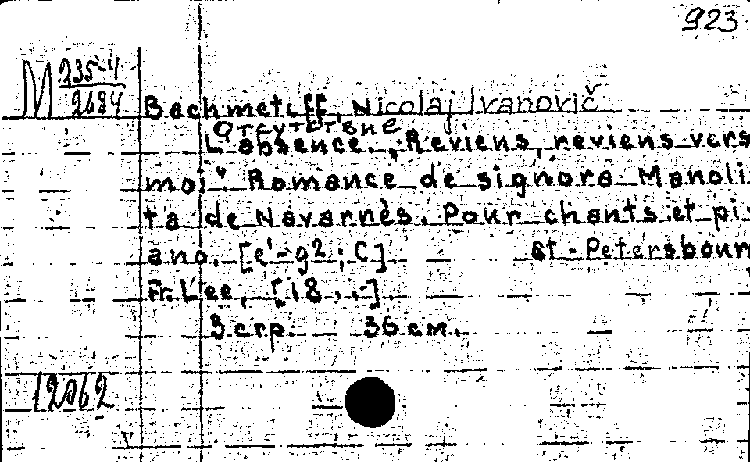 923
M 235-4
2684
Bachmetieff, Nicolaj Ivanovič
Отсутствие
L'absence. „Reviens, reviens vers
moi“. Romance de signora Manoli
ta de Navarnès. Pour chants et pi
ano. [e¹-g²; C] St-Petersbour
Fr. Lee, [18..-]
3 стр. 36 см.
12062